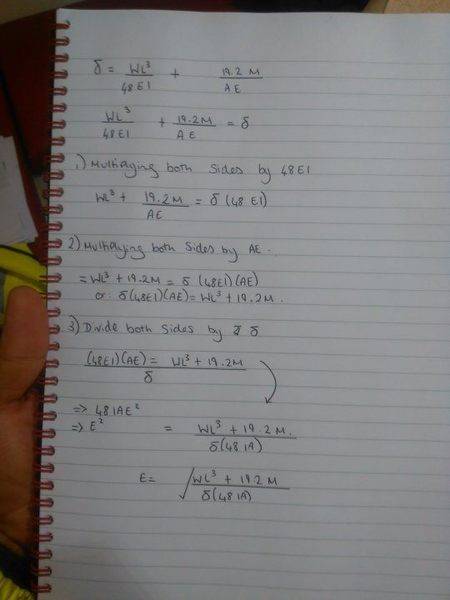 δ = WL³/48EI + 19.2M/AE
WL³/48EI + 19.2M/AE = δ
1) Multiplaying both Sides by 48EI
WL³ + 19.2M/AE = δ (48 EI)
2) Multiplaying both Sides by AE.
= WL³ + 19.2M = δ (48EI)(AE)
or δ(48EI)(AE) = WL³ + 19.2M.
3) Divide both Sides by δ
(48EI)(AE) = WL³ + 19.2M / δ
=> 48IAE²
=> E² = WL³ + 19.2M. / δ(48IA)
E = √WL³ + 19.2M / δ(48IA)